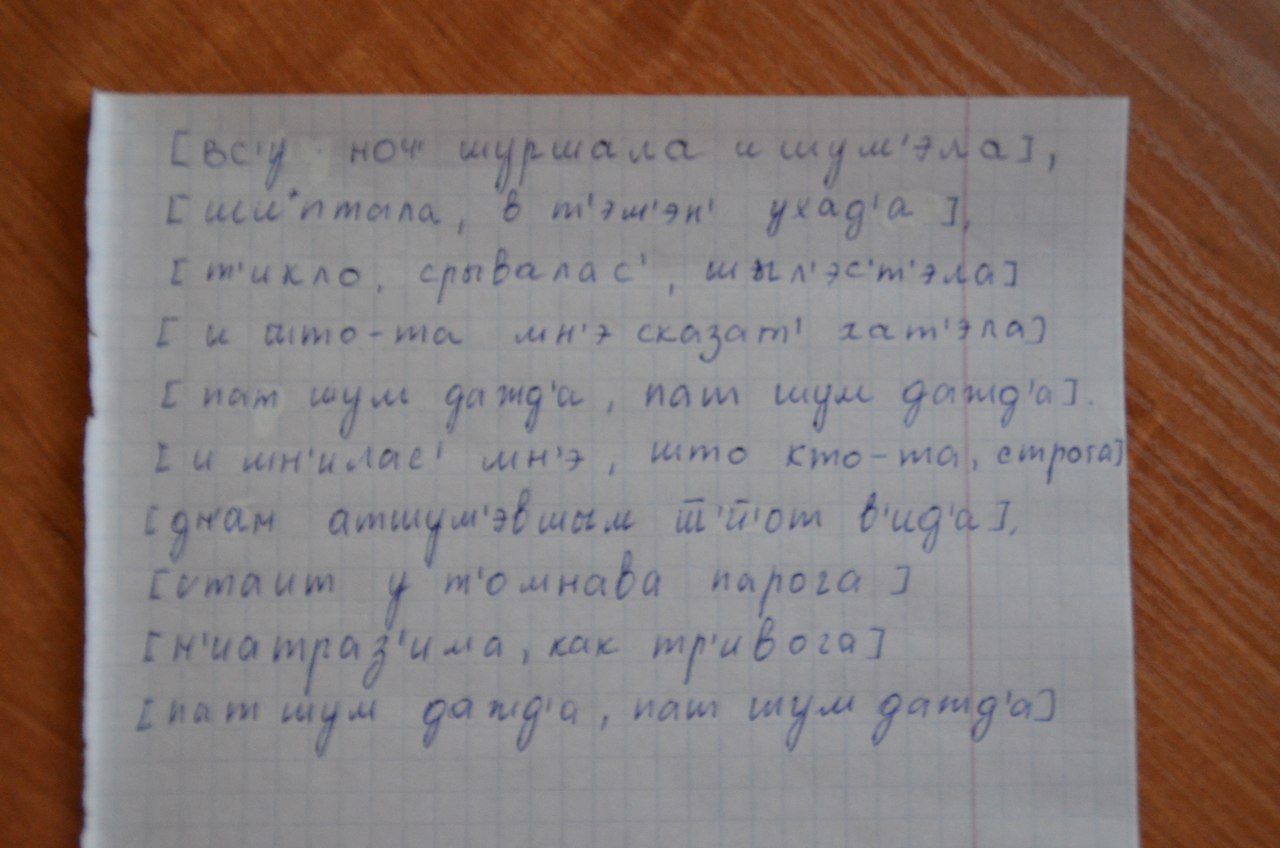 [вс'у ноч' шуршала и шум'эла],
[шиᵉптала, в т'эм'эн' ухад'а],
[т'икло, срывалас', шыл'эс'т'эла]
[и што-та мн'э сказат' хат'эла]
[пат шум дажд'а, пат шум дажд'а].
[и мн'илас' мн'э, што кто-та, строга]
[дн'ам атшум'эвшым п'й'от в'ид'а],
[стаит у т'омнава парога]
[н'иатраз'има, как тр'ивога]
[пат шум дажд'а, пат шум дажд'а]